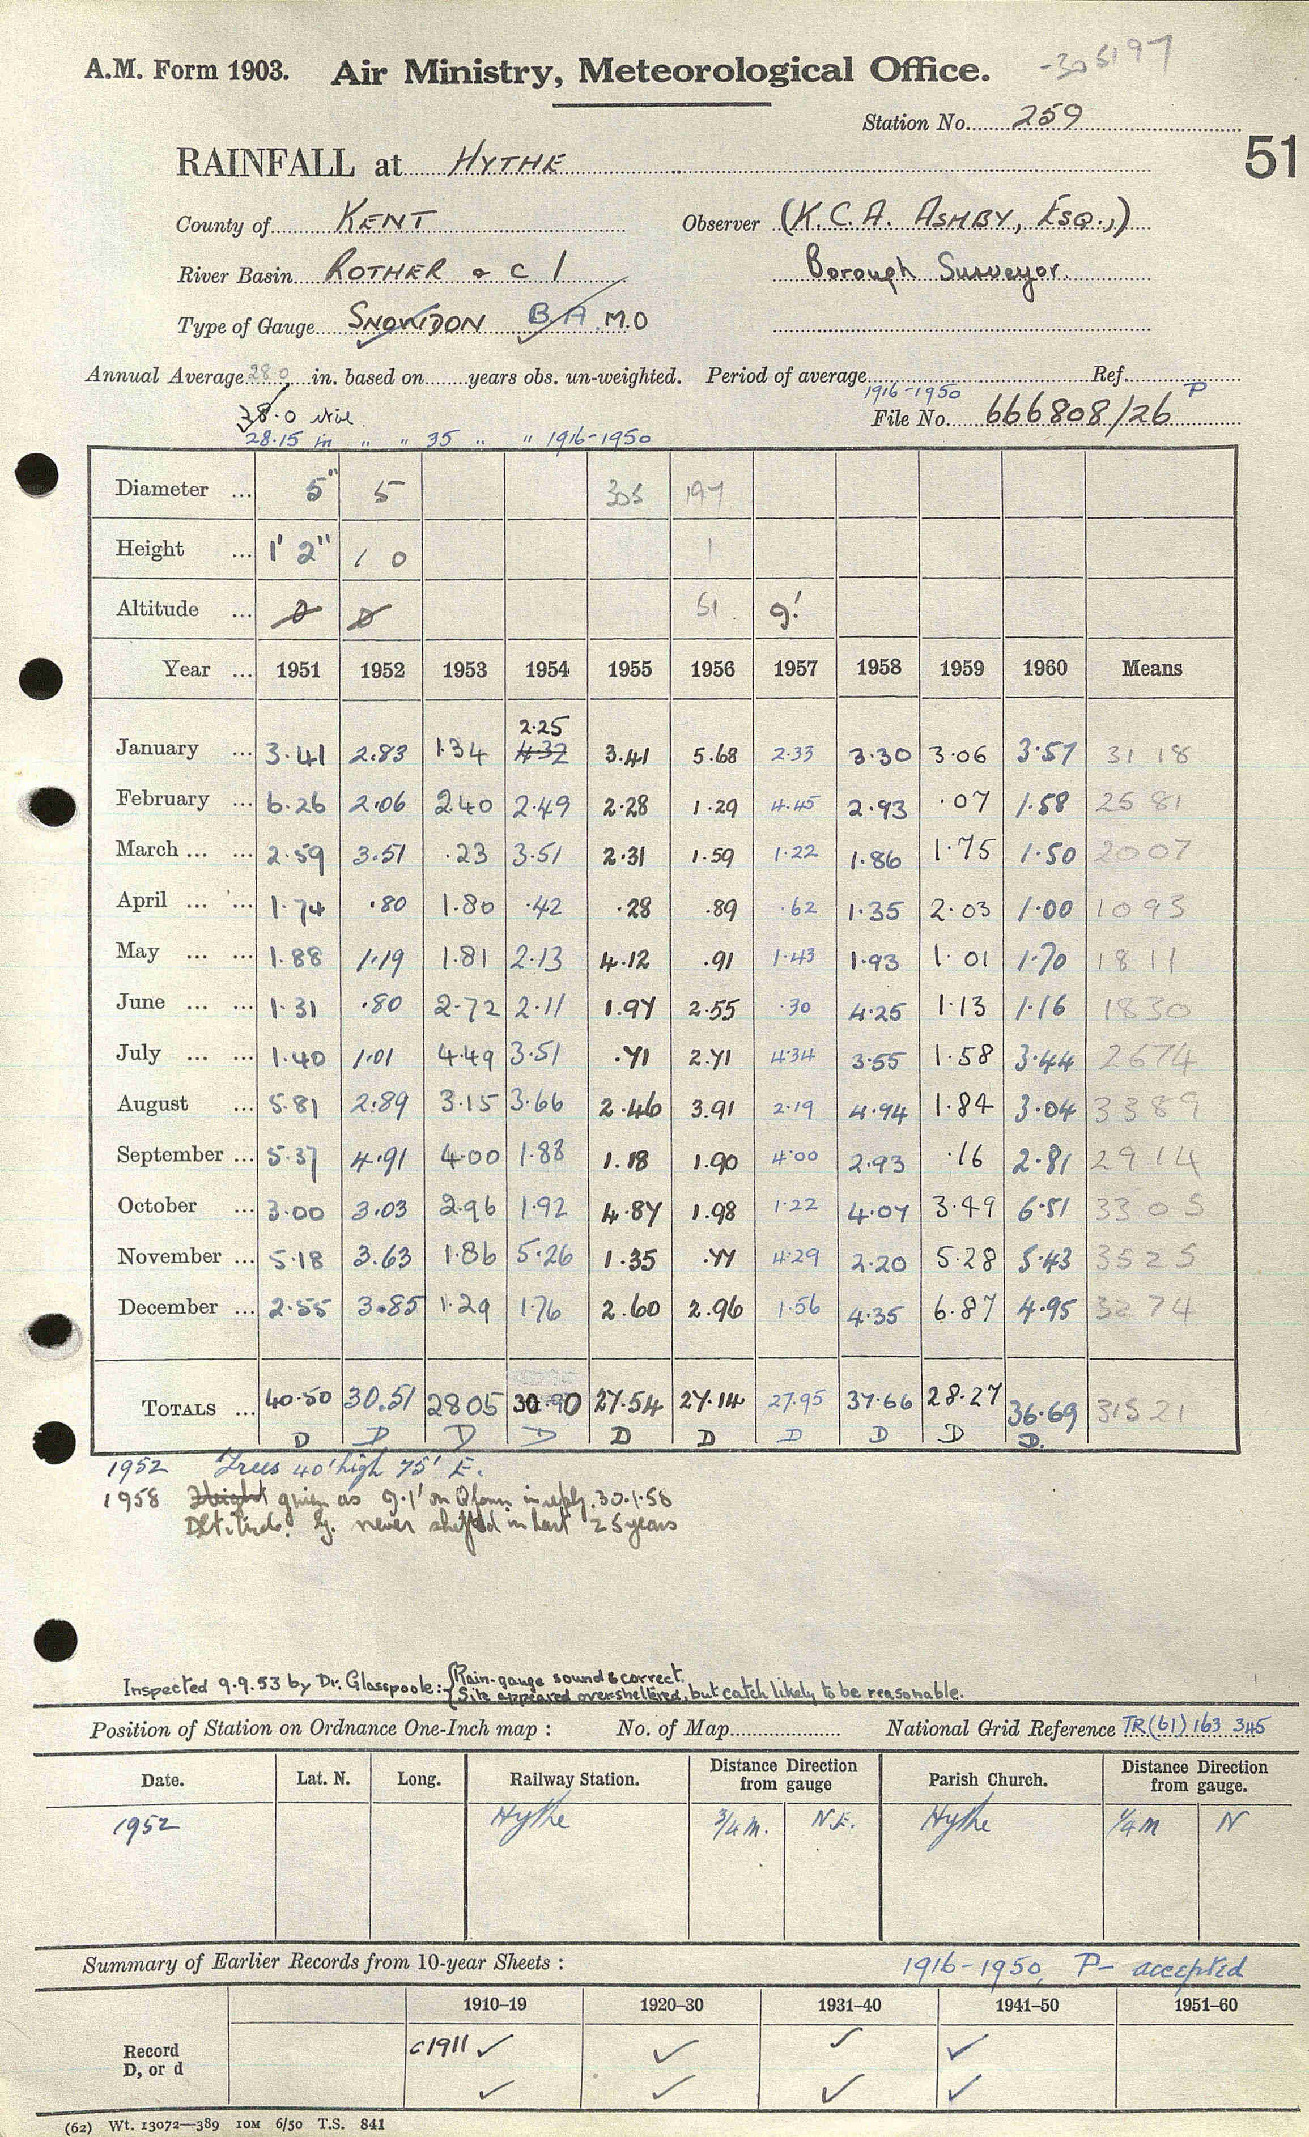 -305197
A.M. Form 1903. Air Ministry, Meteorological Office.
Station No. 259
51
RAINFALL at HYTHE
County of KENT Observer (K.C.A. ASHBY, ESQ.,)
River Basin ROTHER & C 1 Borough Surveyor.
Type of Gauge SNOWDON B A M.O
Annual Average 28.0 in. based on years obs. un-weighted. Period of average Ref.
1916-1950 P
38.0
File No. 666808/26
28.15 in " " 35 " " 1916-1950
Diameter ... 5" 5 305 197
Height ... 1' 2" 1 0 1
Altitude ... 0 0 51 9!
Year ... 1951 1952 1953 1954 1955 1956 1957 1958 1959 1960 Means
2.25
January ... 3.41 2.83 1.34 4.32 3.41 5.68 2.33 3.30 3.06 3.57 31 18
February ... 6.26 2.06 2.40 2.49 2.28 1.29 4.45 2.93 .07 1.58 25 81
March ... ... 2.59 3.51 .23 3.51 2.31 1.59 1.22 1.86 1.75 1.50 20 07
April ... ... 1.74 .80 1.80 .42 .28 .89 .62 1.35 2.03 1.00 10 93
May ... ... 1.88 1.19 1.81 2.13 4.12 .91 1.43 1.93 1.01 1.70 18 11
June ... ... 1.31 .80 2.72 2.11 1.97 2.55 .30 4.25 1.13 1.16 18 30
July ... ... 1.40 1.01 4.49 3.51 .71 2.71 4.34 3.55 1.58 3.44 26 74
August ... 5.81 2.89 3.15 3.66 2.46 3.91 2.19 4.94 1.84 3.04 33 89
September ... 5.37 4.91 4.00 1.88 1.18 1.90 4.00 2.93 .16 2.81 29 14
October ... 3.00 3.03 2.96 1.92 4.87 1.98 1.22 4.07 3.49 6.51 33 05
November ... 5.18 3.63 1.86 5.26 1.35 .77 4.29 2.20 5.28 5.43 35 25
December ... 2.55 3.85 1.29 1.76 2.60 2.96 1.56 4.35 6.87 4.95 32 74
TOTALS ... 40.50 30.51 28.05 30.90 27.54 27.14 27.95 37.66 28.27 36.69 315 21
D D D D D D D D D D.
1952 Trees 40' high 75' E.
1958 Height given as 9.1' on Q form in reply. 30.1.58
Altitude. g. never shifted in last 25 years
Inspected 9.9.53 by Dr. Glasspoole:- {Rain-gauge sound & correct.
Site appeared oversheltered, but catch likely to be reasonable.
Position of Station on Ordnance One-Inch map : No. of Map National Grid Reference TR(61) 163 345
Date. Lat. N. Long. Railway Station. Distance from gauge Direction Parish Church. Distance from gauge. Direction
1952 Hythe 3/4 m. N.E. Hythe 1/4 m N
Summary of Earlier Records from 10-year Sheets : 1916-1950, P- accepted
1910–19 1920–30 1931–40 1941–50 1951–60
Record c1911 ✓ ✓ ✓ ✓
D, or d ✓ ✓ ✓ ✓
(62) Wt. 13072—389 10M 6/50 T.S. 841